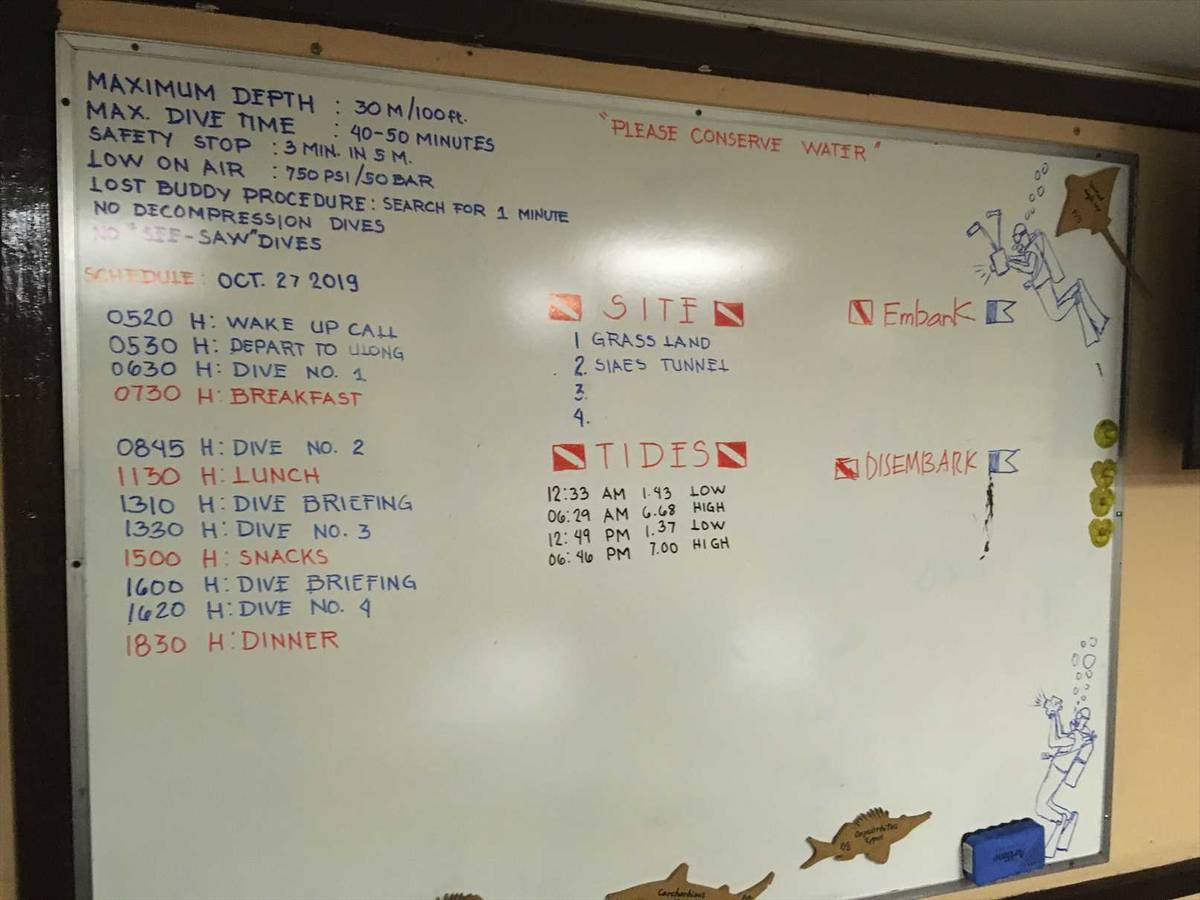 MAXIMUM DEPTH : 30 M/100ft.
MAX. DIVE TIME : 40-50 MINUTES
SAFETY STOP : 3 MIN. IN 5 M.
LOW ON AIR : 750 PSI/50 BAR
LOST BUDDY PROCEDURE: SEARCH FOR 1 MINUTE
NO DECOMPRESSION DIVES
NO "SEE-SAW" DIVES
"PLEASE CONSERVE WATER"
SCHEDULE: OCT. 27 2019
0520 H: WAKE UP CALL
0530 H: DEPART TO ULONG
0630 H: DIVE NO. 1
0730 H: BREAKFAST
0845 H: DIVE NO. 2
1130 H: LUNCH
1310 H: DIVE BRIEFING
1330 H: DIVE NO. 3
1500 H: SNACKS
1600 H: DIVE BRIEFING
1620 H: DIVE NO. 4
1830 H: DINNER
SITE
1 GRASS LAND
2. SIAES TUNNEL
3.
4.
TIDES
12:33 AM 1.43 LOW
06:29 AM 6.68 HIGH
12:49 PM 1.37 LOW
06:46 PM 7.00 HIGH
Embark
DISEMBARK